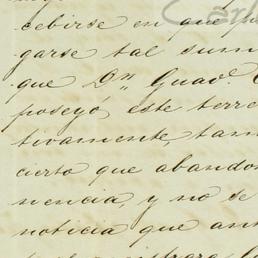 cebirse en que pu
garse tal sum
que Dn Guad.e
poseyó este terre
tivamente, tam
cierto que abandon
nencia, y no se
noticia que ant